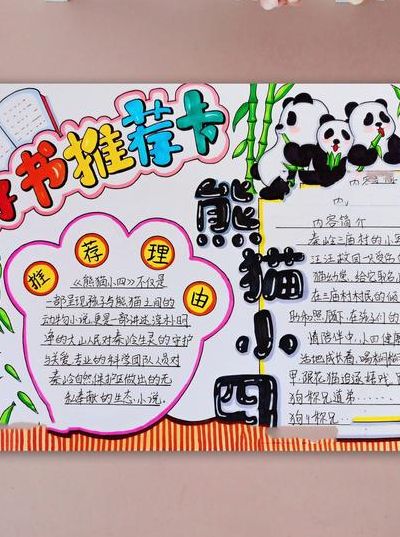 好书推荐卡
推荐理由
《熊猫小四》不仅是
一部呈现孩子与熊猫之间的
动物小说,更是一部讲述淳朴时
单的大山人民对秦岭生灵的守护
与关爱,专业的科学团队人员对
秦岭自然保护区做出的无
私奉献的生态小说.
熊猫小四
内容
内,
内容简介
秦岭三庙村的小
江江救回一只
猫幼崽,给它取名
在三庙村村民的
助和照顾下,在孩子们的
情陪伴中,小四健康
当地成长着,喝
早跟花猫追逐嬉戏,
狗称兄道弟……
狗个称兄